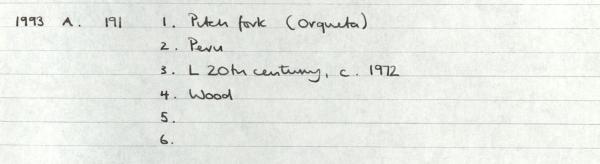 1993 A. 191 1. Pitch fork (Orqueta)
2. Peru
3. L 20th century, c. 1972
4. Wood
5.
6.